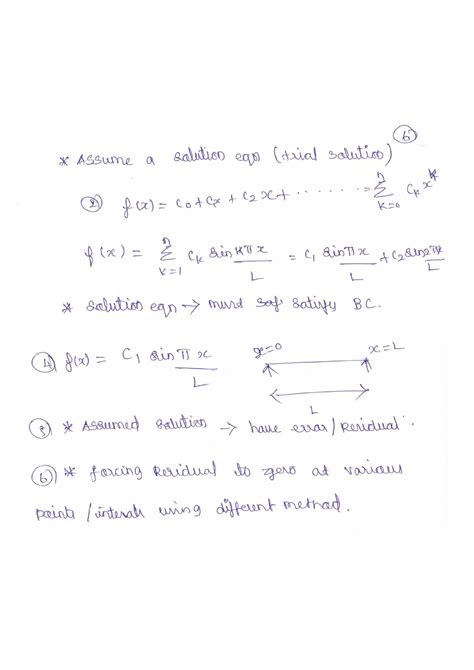 6
* Assume a solution eqn (trial solution)
2 f(x) = c0 + cx + c2 x + ....... = n Σ k=0 ck x^k
f(x) = n Σ k=1 ck sin kπx / L = c1 sin πx / L + c2 sin 2πx / L
* solution eqn → must satisfy BC.
4 f(x) = C1 sin πx / L x=0 x=L
L
* Assumed solution → have error/Residual.
* forcing Residual to zero at various
points /intervals using different method.